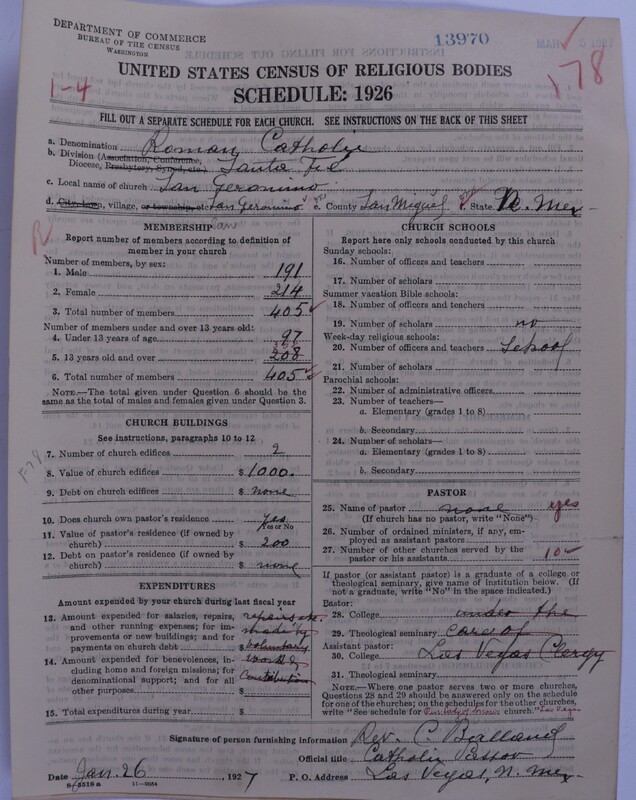 DEPARTMENT OF COMMERCE
BUREAU OF THE CENSUS
WASHINGTON
13970
178
1-4
UNITED STATES CENSUS OF RELIGIOUS BODIES
SCHEDULE: 1926
FILL OUT A SEPARATE SCHEDULE FOR EACH CHURCH. SEE INSTRUCTIONS ON THE BACK OF THIS SHEET
a. Denomination Roman Catholic
b. Division (Association, Conference, Diocese, Presbytery, Synod, etc.) Santa Fe
c. Local name of church San Geronimo
d. City, town, village, or township, etc. San Geronimo e. County San Miguel f. State N. Mex
R
MEMBERSHIP
Report number of members according to definition of
member in your church
Number of members, by sex:
1. Male 191
2. Female 214
3. Total number of members 405
Number of members under and over 13 years old:
4. Under 13 years of age 97
5. 13 years old and over 308
6. Total number of members 405
NOTE.—The total given under Question 6 should be the
same as the total of males and females given under Question 3.
CHURCH BUILDINGS
See instructions, paragraphs 10 to 12
7. Number of church edifices 2
8. Value of church edifices $ 1000.
9. Debt on church edifices $ none
10. Does church own pastor's residence? Yes
Yes or No
11. Value of pastor's residence (if owned by
church) $ 200
12. Debt on pastor's residence (if owned by
church) $ none
EXPENDITURES
Amount expended by your church during last fiscal year
13. Amount expended for salaries, repairs, repairs etc.
and other running expenses; for im- made by
provements or new buildings; and for
payments on church debt $ voluntary
14. Amount expended for benevolences, in- work &
cluding home and foreign missions; for
denominational support; and for all contribution
other purposes $
15. Total expenditures during year $
CHURCH SCHOOLS
Report here only schools conducted by this church
Sunday schools:
16. Number of officers and teachers
17. Number of scholars
Summer vacation Bible schools:
18. Number of officers and teachers
19. Number of scholars no
Week-day religious schools:
20. Number of officers and teachers School
21. Number of scholars
Parochial schools:
22. Number of administrative officers
23. Number of teachers—
a. Elementary (grades 1 to 8)
b. Secondary
24. Number of scholars—
a. Elementary (grades 1 to 8)
b. Secondary
PASTOR
25. Name of pastor none yes
(If church has no pastor, write "None")
26. Number of ordained ministers, if any, em-
ployed as assistant pastors
27. Number of other churches served by the
pastor or his assistants. 10
If pastor (or assistant pastor) is a graduate of a college or
theological seminary, give name of institution below. (If
not a graduate, write "No" in the space indicated.)
Pastor:
28. College under the
29. Theological seminary care of
Assistant pastor:
30. College Las Vegas Clergy
31. Theological seminary
NOTE.—Where one pastor serves two or more churches,
Questions 28 and 29 should be answered only on the schedule
for one of the churches; on the schedules for the other churches,
write "See schedule for Our Lady of Sorrows church." Las Vegas
Signature of person furnishing information Rev. C. Balland
Official title Catholic Pastor
Date Jan. 26, 1927 P. O. Address Las Vegas, N. Mex.
8-5518 a 11-9084